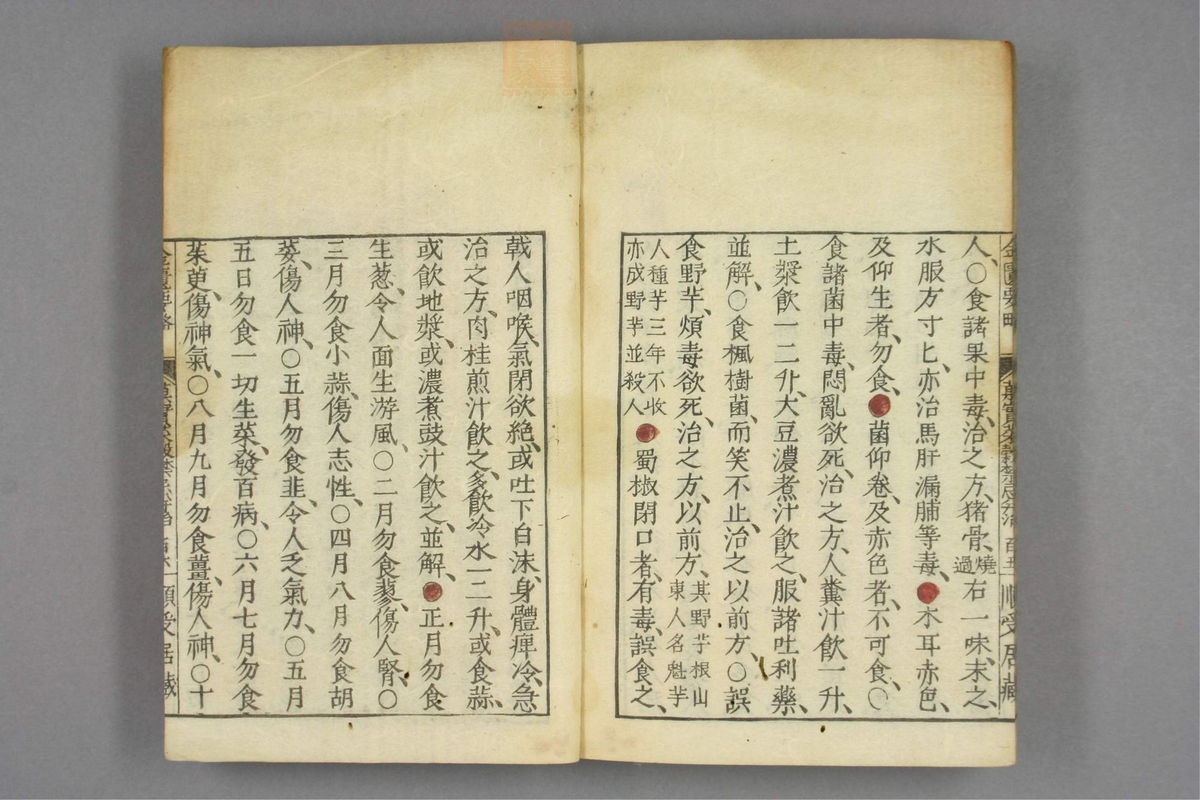 人、○食諸果中毒、治之方、猪骨燒過右一味、末之、
水服方寸匕、亦治馬肝漏脯等毒、●木耳赤色、
及仰生者、勿食、●菌仰卷、及赤色者、不可食、○
食諸菌中毒、悶亂欲死、治之方、人糞汁飲一升、
土漿飲一二升、大豆濃煮汁飲之、服諸吐利藥、
並解、○食楓樹菌、而笑不止、治之以前方、○誤
食野芋、煩毒欲死、治之方、以前方、其野芋根山東人名魁芋
人種芋三年不收亦成野芋並殺人●蜀椒閉口者、有毒、誤食之、
戟人咽喉、氣閉欲絶、或吐下白沫、身體痺冷、急
治之方、肉桂煎汁飲之、多飲冷水一二升、或食蒜、
或飲地漿、或濃煮豉汁飲之、並解、●正月勿食
生葱、令人面生游風、○二月勿食蓼、傷人腎、○
三月勿食小蒜、傷人志性、○四月八月勿食胡
荽、傷人神、○五月勿食韭、令人乏氣力、○五月
五日勿食一切生菜、發百病、○六月七月勿食
茱萸、傷神氣、○八月九月勿食薑、傷人神、○十